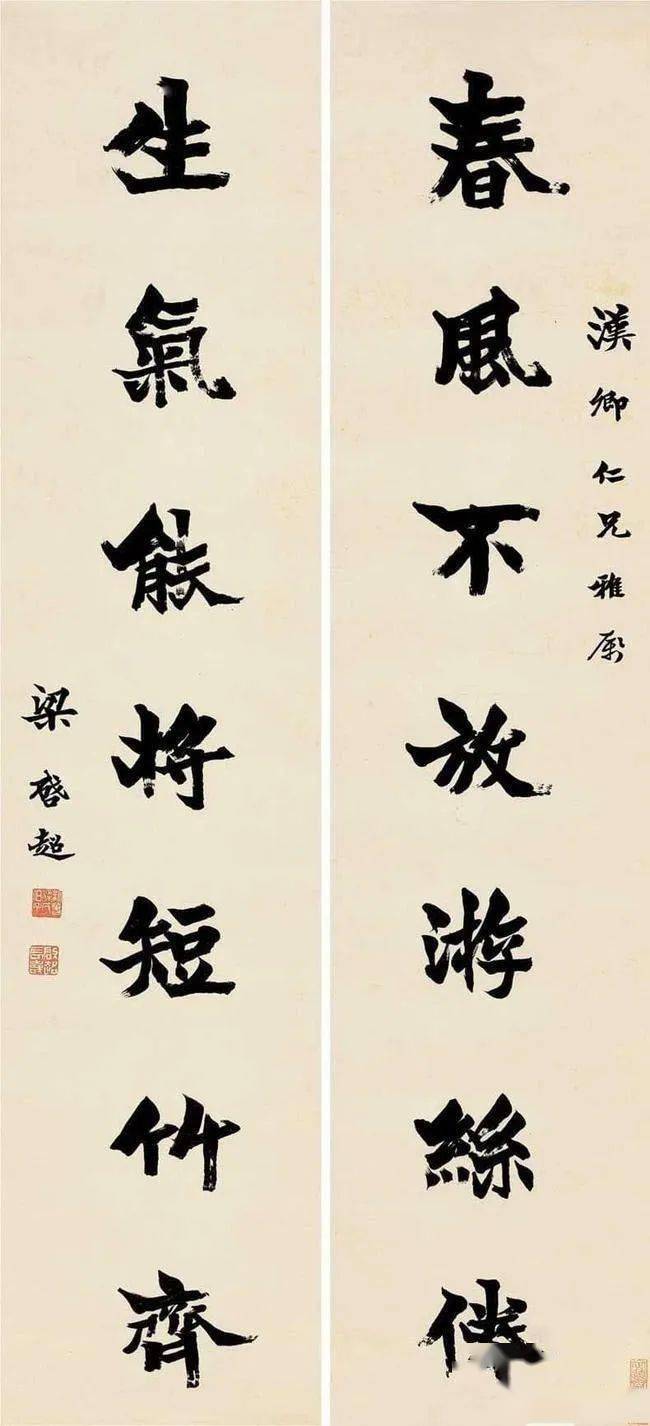 漢卿仁兄雅屬
春風不放游絲
生氣能將短竹齊
梁啓超